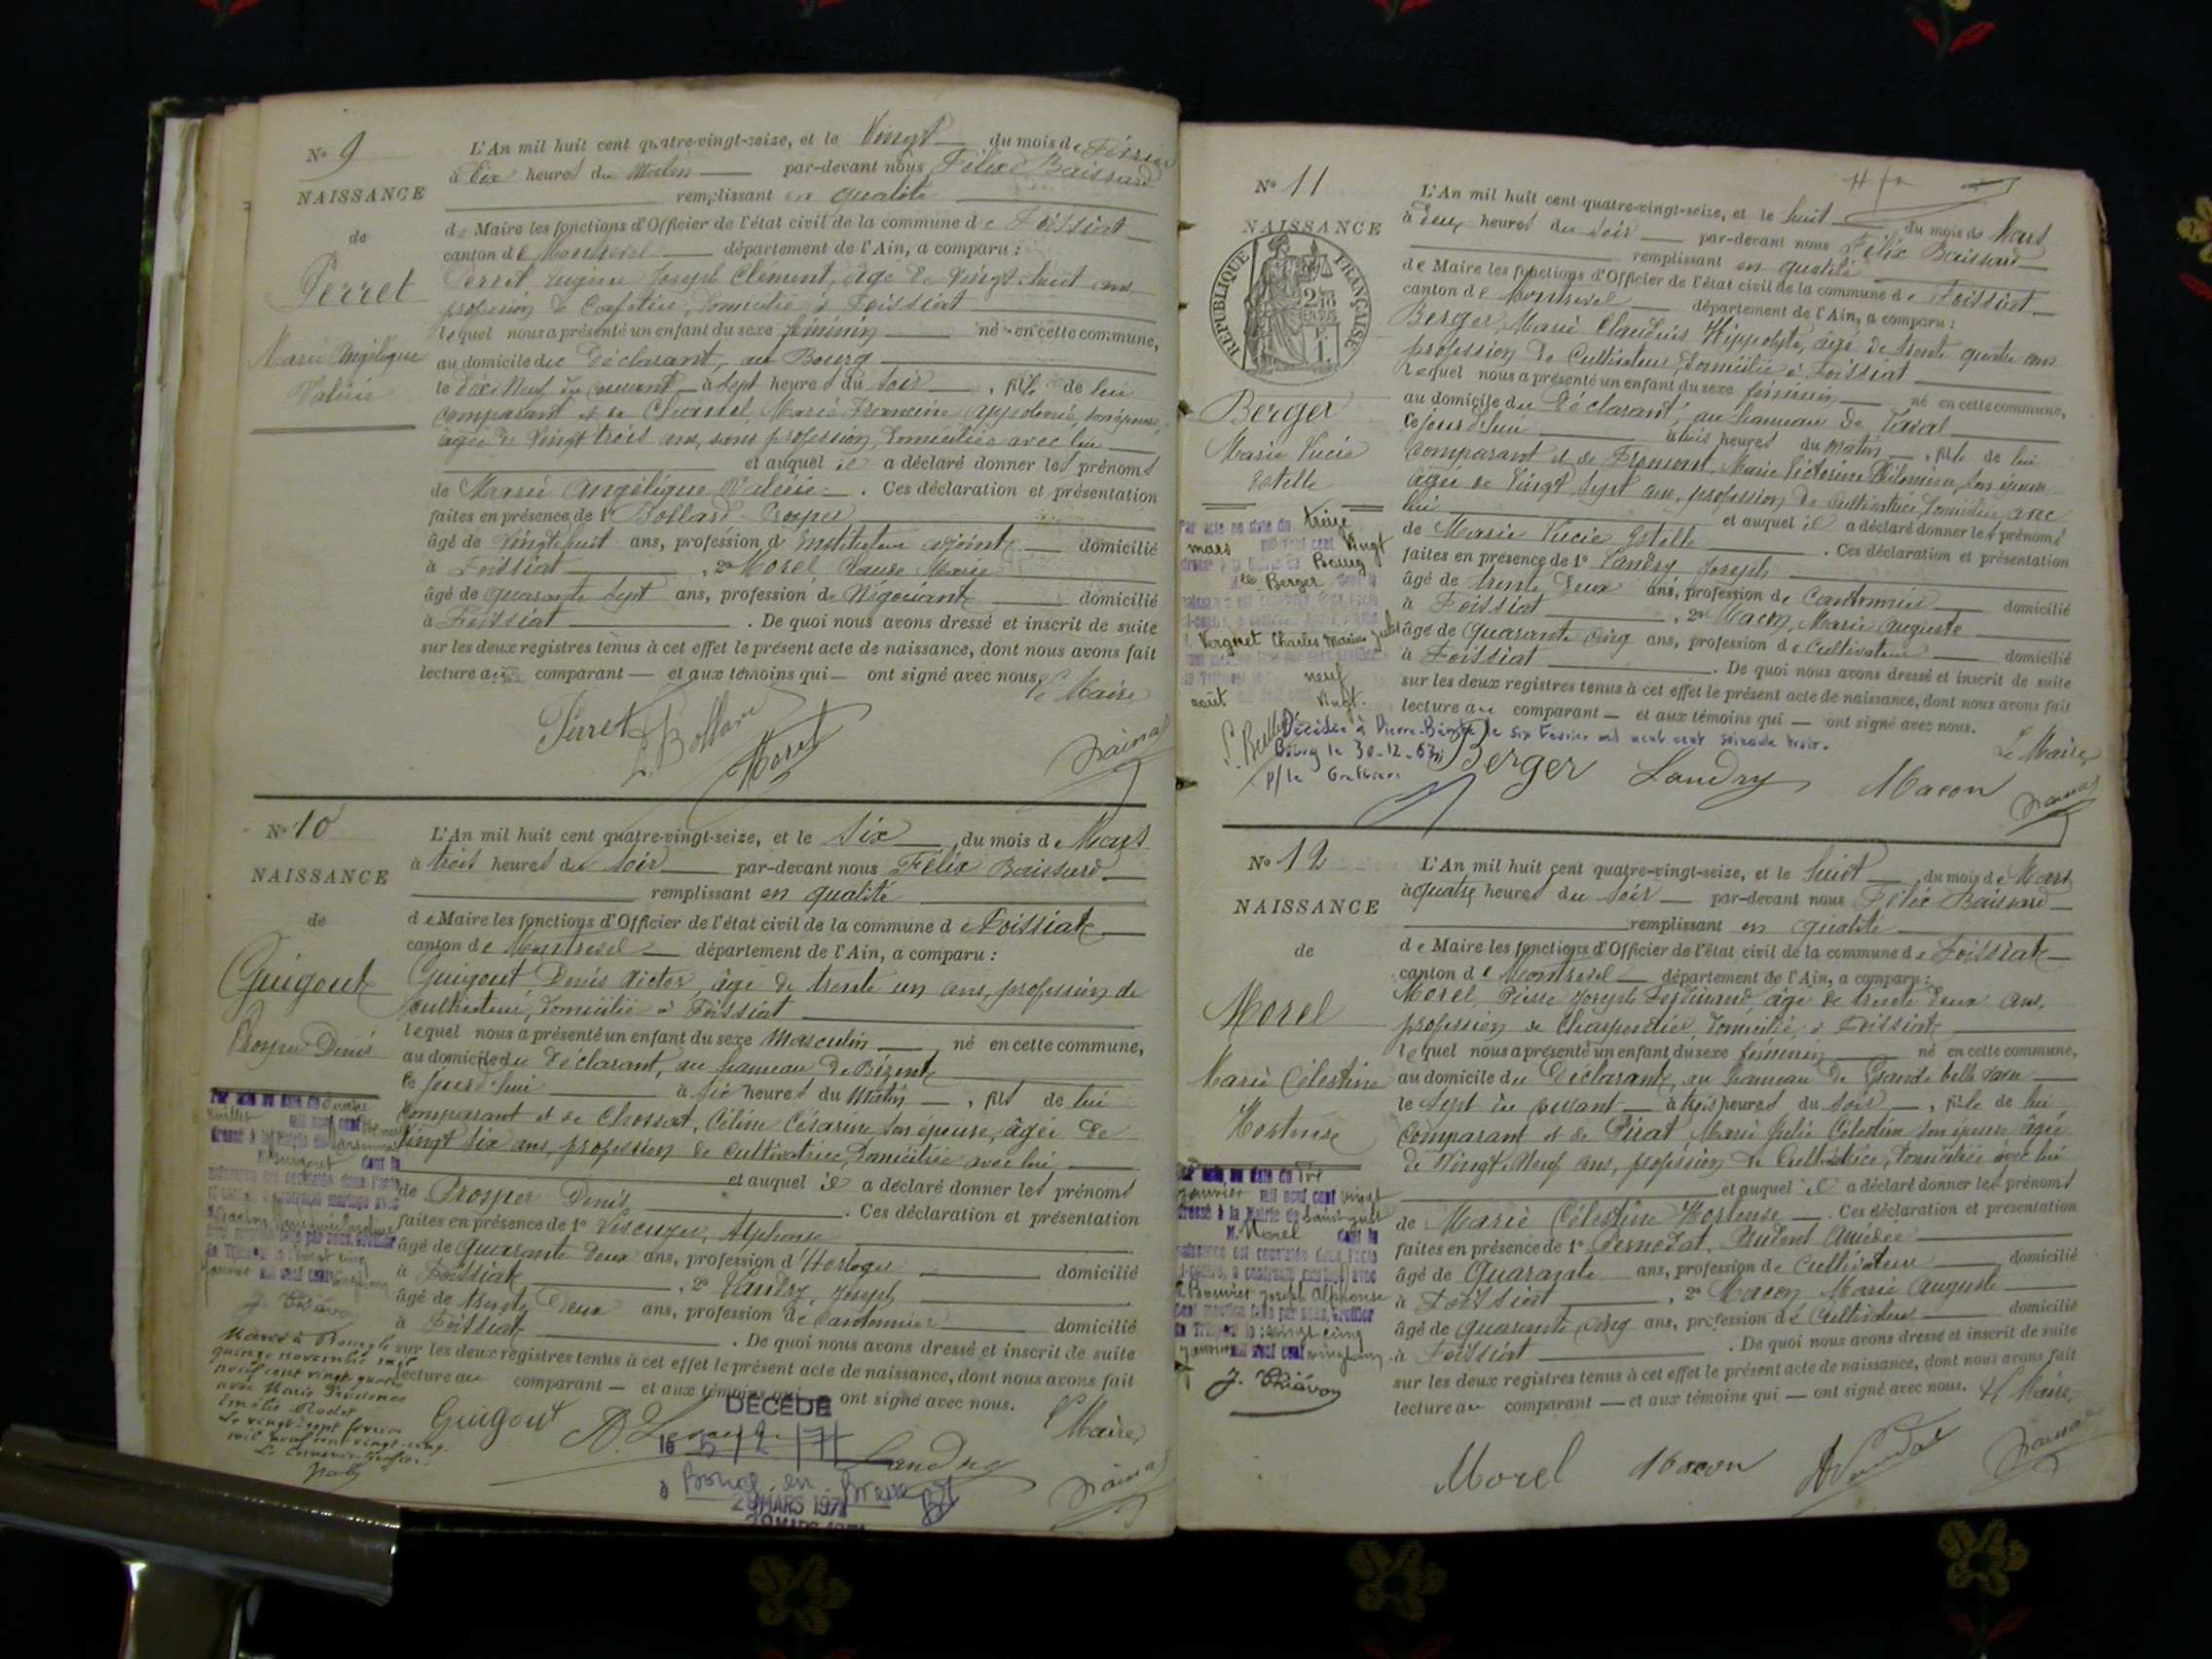 N° 9
NAISSANCE
de
Perret
Marie Angélique
Valérie
L'An mil huit cent quatre-vingt-seize, et le Vingt du mois de Février
à Dix heures du Matin par-devant nous Félix Baissard
remplissant en qualité
de Maire les fonctions d'Officier de l'état civil de la commune de Foissiat
canton de Montrevel département de l'Ain, a comparu :
Perret Eugène Joseph Clément, âgé de vingt-huit ans,
profession de Cafetier, domicilié à Foissiat
lequel nous a présenté un enfant du sexe féminin né en cette commune,
au domicile du Déclarant, au Bourg
le Dix-Neuf du courant à Sept heures du Soir, fille de lui
comparant et de Chanel, Marie Francine, son épouse,
âgée de Vingt trois ans, sans profession, domiciliée avec lui
et auquel il a déclaré donner les prénoms
de Marie Angélique Valérie. Ces déclaration et présentation
faites en présence de 1° Bollard Prosper
âgé de vingt huit ans, profession d'Instituteur adjoint domicilié
à Foissiat, 2° Morel Claude Marie
âgé de quarante sept ans, profession de Négociant domicilié
à Foissiat. De quoi nous avons dressé et inscrit de suite
sur les deux registres tenus à cet effet le présent acte de naissance, dont nous avons fait
lecture au comparant et aux témoins qui ont signé avec nous. Le Maire
Perret Bollard Morel
N° 10
NAISSANCE
de
Guigout
Prosper Denis
L'An mil huit cent quatre-vingt-seize, et le Six du mois de Mars
à trois heures du Soir par-devant nous Félix Baissard
remplissant en qualité
de Maire les fonctions d'Officier de l'état civil de la commune de Foissiat
canton de Montrevel département de l'Ain, a comparu :
Guigout Denis Victor, âgé de trente un ans, profession de
cultivateur, domicilié à Foissiat
lequel nous a présenté un enfant du sexe Masculin né en cette commune,
au domicile du Déclarant, au hameau de Bézent
le jourd'hui à Six heures du Matin, fils de lui
comparant et de Chossat, Céline Césarine, son épouse, âgée de
Vingt six ans, profession de Cultivatrice, domiciliée avec lui,
et auquel il a déclaré donner les prénoms
de Prosper Denis. Ces déclaration et présentation
faites en présence de 1° Alphonse
âgé de Quarante deux ans, profession d'Horloger domicilié
à Foissiat, 2° Landry, Joseph
âgé de trente deux ans, profession de Cantonnier domicilié
à Foissiat. De quoi nous avons dressé et inscrit de suite
sur les deux registres tenus à cet effet le présent acte de naissance, dont nous avons fait
lecture au comparant et aux témoins qui ont signé avec nous.
Le Maire
Guigout Landry
Marié à Bourg le
quinze novembre mil
neuf cent vingt quatre
avec Marie Prudence
Emélie Rodet
Le vingt-sept février
mil neuf cent vingt-cinq.
DÉCÉDÉ
le 5/2/71
à Bourg en Bresse
29 MARS 1971
N° 11
NAISSANCE
RÉPUBLIQUE FRANÇAISE
Berger
Marie Lucie
Estelle
L'An mil huit cent quatre-vingt-seize, et le huit du mois de Mars
à Deux heures du Soir par-devant nous Félix Baissard
remplissant en qualité
de Maire les fonctions d'Officier de l'état civil de la commune de Foissiat
canton de Montrevel département de l'Ain, a comparu :
Berger, Marie Claudius Hippolyte, âgé de trente quatre ans
profession de Cultivateur, domicilié à Foissiat
lequel nous a présenté un enfant du sexe féminin né en cette commune,
au domicile du Déclarant, au hameau de
le jourd'hui à trois heures du Matin, fille de lui
comparant et de Fromont, Marie Victorine Philomène, son épouse
âgée de Vingt Sept ans, profession de cultivatrice, domiciliée avec
lui et auquel il a déclaré donner les prénoms
de Marie Lucie Estelle. Ces déclaration et présentation
faites en présence de 1° Landry Joseph
âgé de trente deux ans, profession de Cantonnier domicilié
à Foissiat, 2° Macon, Marie Auguste
âgé de Quarante cinq ans, profession de Cultivateur domicilié
à Foissiat. De quoi nous avons dressé et inscrit de suite
sur les deux registres tenus à cet effet le présent acte de naissance, dont nous avons fait
lecture au comparant et aux témoins qui ont signé avec nous.
Le Maire
Par acte en date du treize
mars mil neuf cent vingt
Bourg
Berger
Vergnet Charles Marius Jules
neuf
août vingt.
Décédée à Pierre-Bénite le six Février mil neuf cent soixante trois.
Bourg le 30-12-63
p/le Greffier
Berger Landry Macon
N° 12
NAISSANCE
de
Morel
Marie Célestine
Hortense
L'An mil huit cent quatre-vingt-seize, et le huit du mois de Mars
à quatre heures du Soir par-devant nous Félix Baissard
remplissant en qualité
de Maire les fonctions d'Officier de l'état civil de la commune de Foissiat
canton de Montrevel département de l'Ain, a comparu :
Morel, Pierre Joseph Ferdinand, âgé de trente deux ans,
profession de Charpentier, domicilié à Foissiat
lequel nous a présenté un enfant du sexe féminin né en cette commune,
au domicile du Déclarant, au hameau de Grande belle
le Sept du courant à trois heures du Soir, fille de lui
comparant et de Pirat Marie Julie Célestine son épouse âgée
de Vingt-Neuf ans, profession de Cultivatrice, domiciliée avec lui
et auquel il a déclaré donner les prénoms
de Marie Célestine Hortense. Ces déclaration et présentation
faites en présence de 1° Pernodat, Prudent Amédée
âgé de Quarante ans, profession de Cultivateur domicilié
à Foissiat, 2° Macon Marie Auguste
âgé de quarante cinq ans, profession de Cultivateur domicilié
à Foissiat. De quoi nous avons dressé et inscrit de suite
sur les deux registres tenus à cet effet le présent acte de naissance, dont nous avons fait
lecture au comparant et aux témoins qui ont signé avec nous. Le Maire
janvier mil neuf cent vingt
dressé à la Mairie de
M. Morel dont la
naissance est constatée dans l'acte
ci-contre, a contracté mariage avec
M. Bouvier Joseph Alphonse
Dont mention faite par nous, Greffier
du Tribunal le vingt cinq
janvier mil neuf cent vingt cinq
Morel Macon